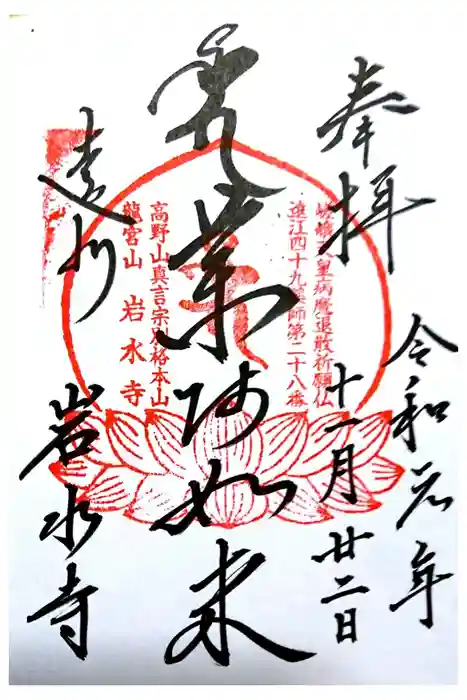 奉拝
令和元年
十一月廿二日
薬師如来
遠州
岩水寺
嵯峨天皇病魔退散祈願仏
遠江四十九薬師第二十八番
高野山真言宗別格本山
龍宮山 岩水寺